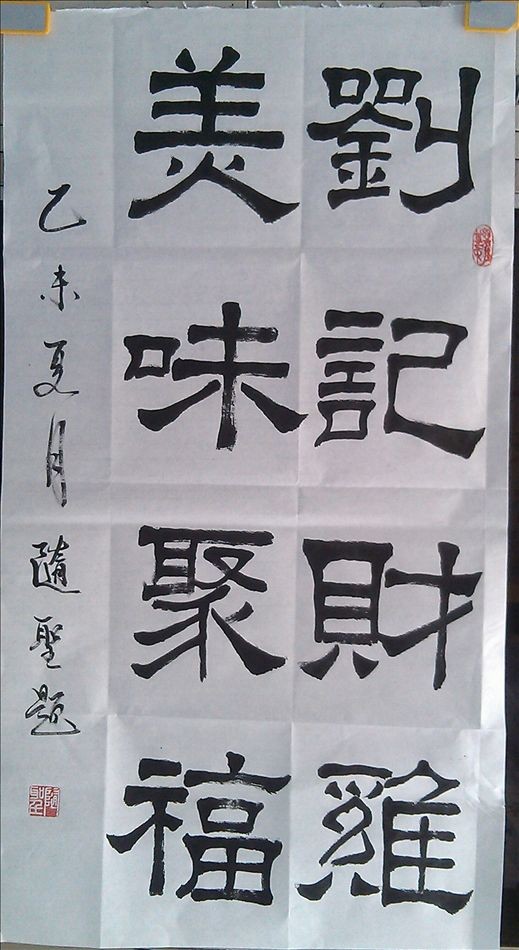 劉記財雞
美味聚福
乙未夏月隨聖題